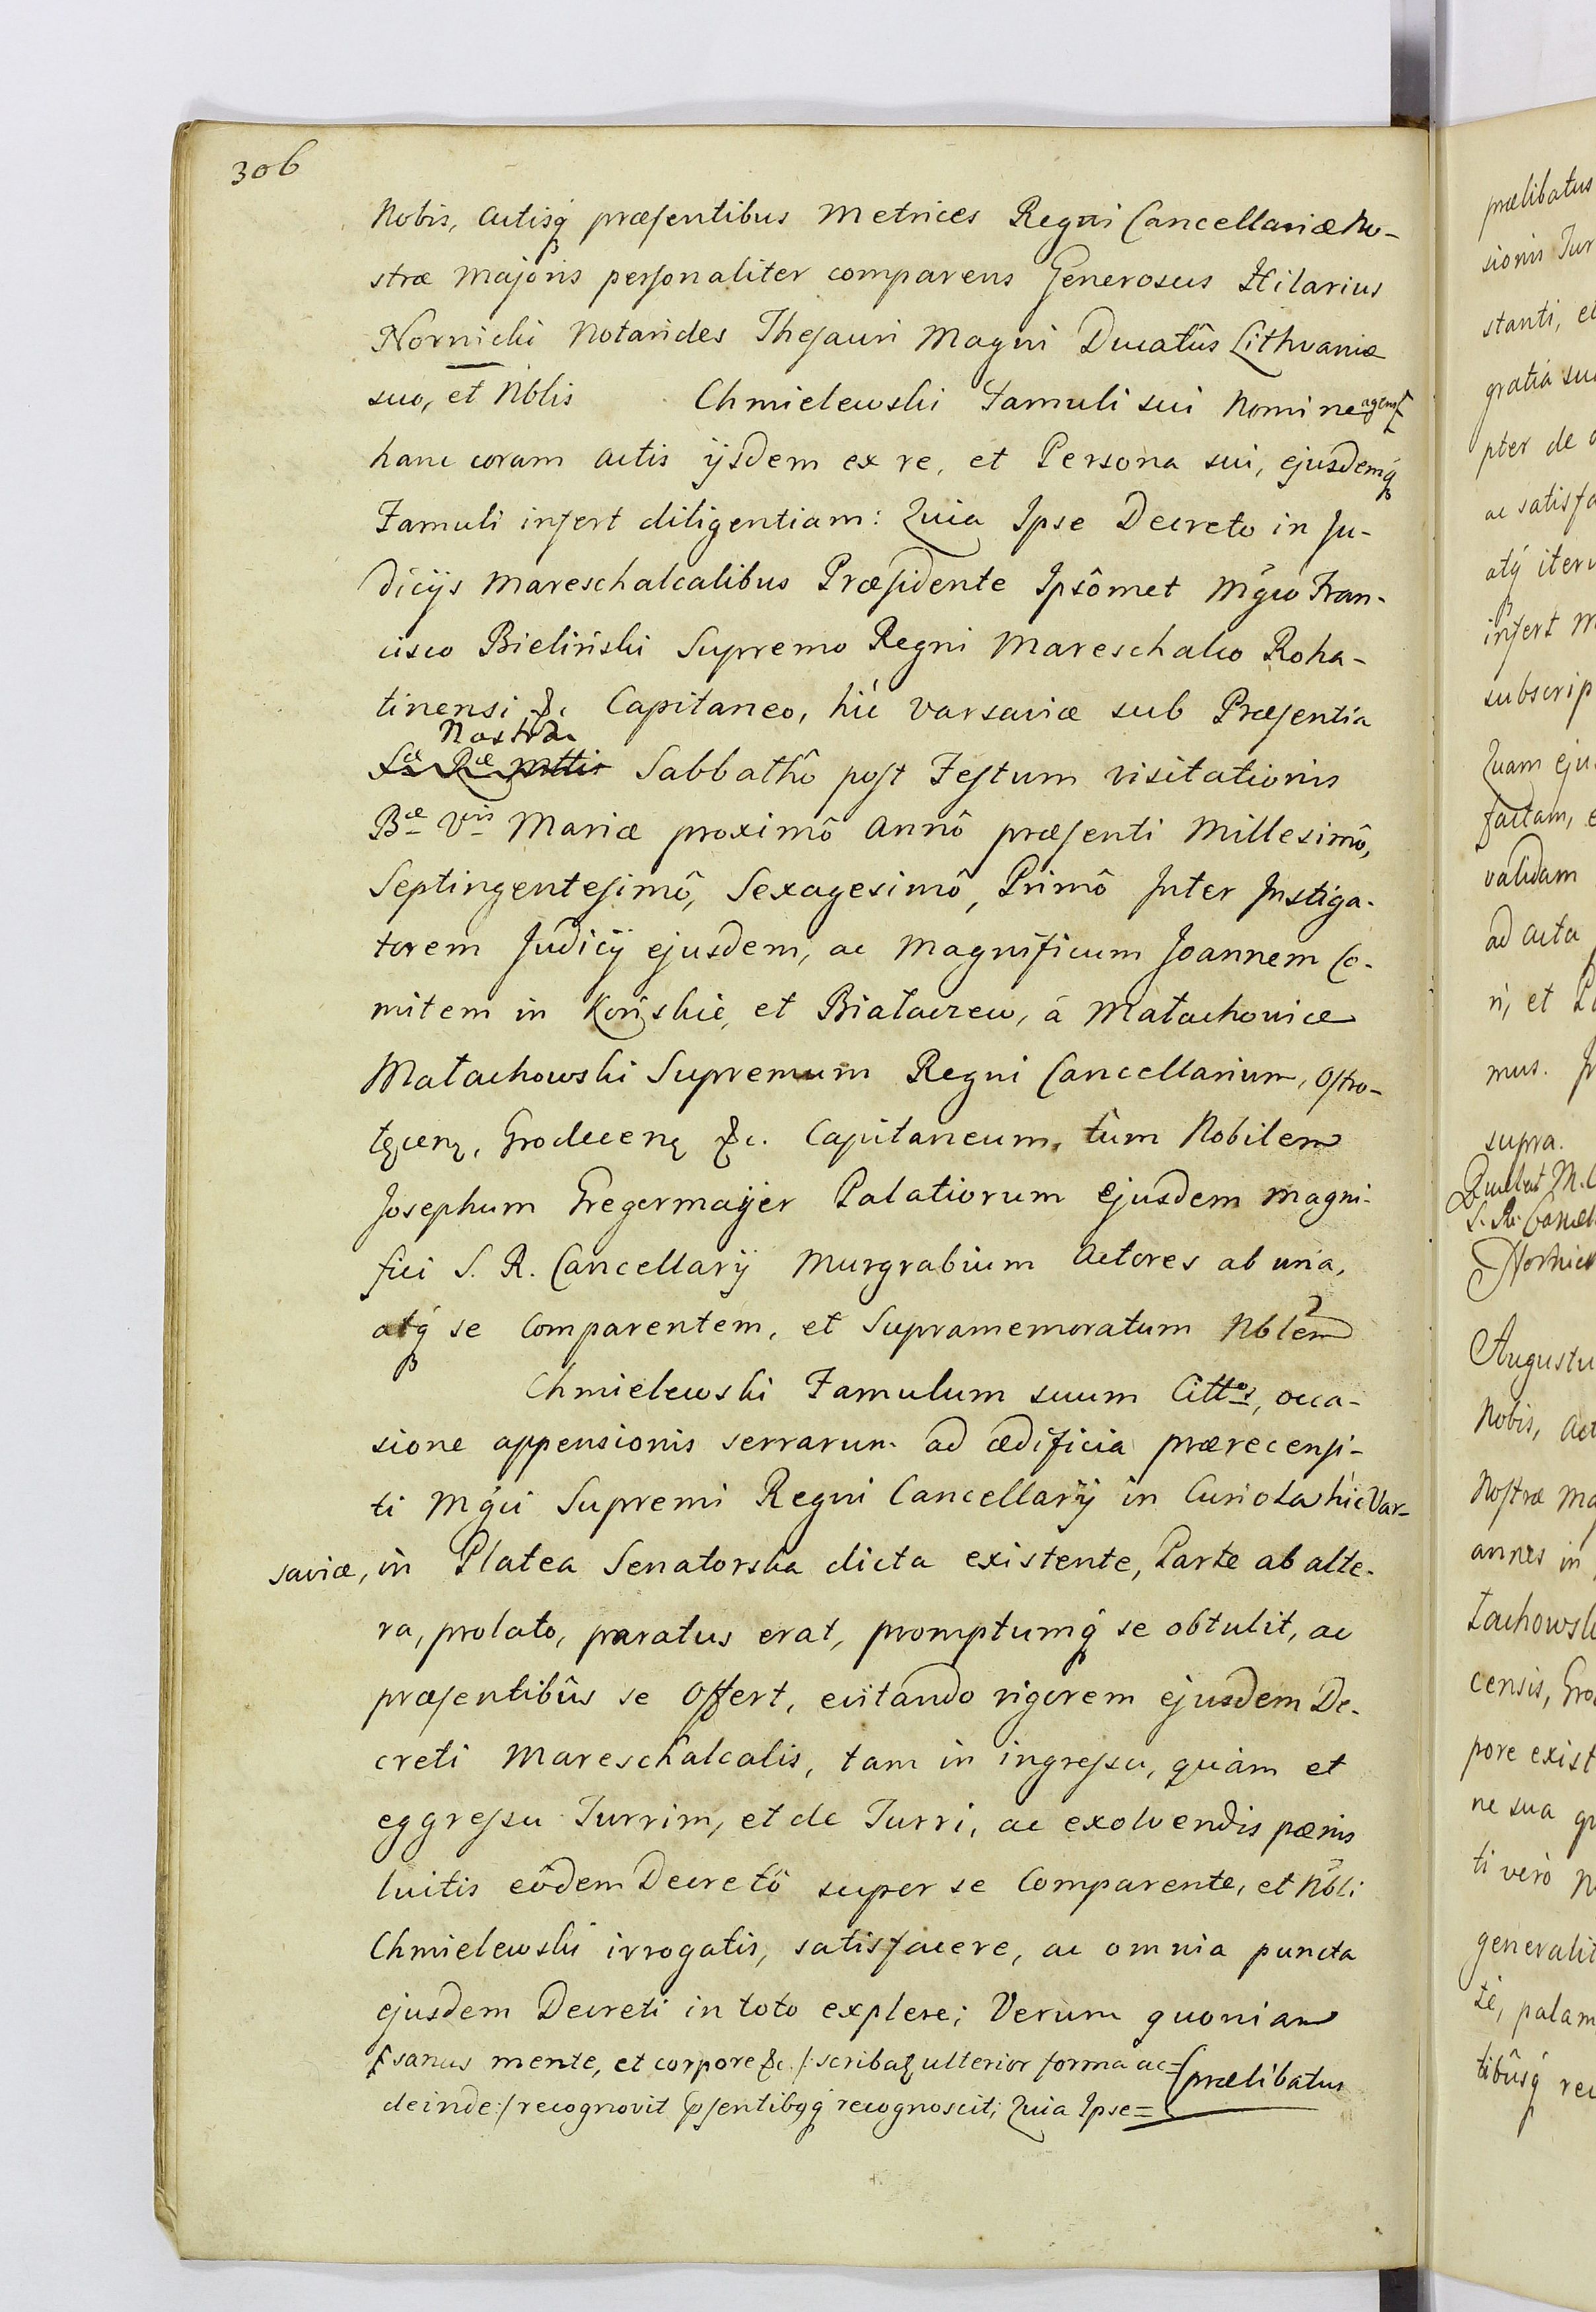 306
Nobis, Actisq́ præsentibus Metrices Regni Cancellariæ No-
stræ Majoris personaliter comparens Generosus Hilarius
Nornicki Notarides Thesauri Magni Ducatûs Lithvaniæ
suo, et Nblis Chmielewski Famuli sui Nomine agens
hanc coram Actis ijsdem ex re, et Persona sui, ejusdemq́
Famuli infert diligentiam: Quia Ipse Decreto in Ju-
dicijs Mareschalcalibus Præsidente Ipsômet Mgco Fran-
cisco Bieliński Supremo Regni Mareschalco Roha-
tinensi &c Capitaneo, hic Varsaviæ sub Præsentia
Nostra
Sæ Ræ Mttis Sabbathô post Festum Visitationis
Bæ Vnis Mariæ proximô Annô præsenti Millesimô,
Septingentesimô, Sexagesimô, Primô Inter Instiga-
torem Judicij ejusdem, ac Magnificum Joannem Co-
mitem in Końskie, et Białaczew, á Małachowice
Małachowski Supremum Regni Cancellarium, Ostro-
łęcenę, Grodecenę &c. Capitaneum, tûm Nobilem
Josephum Gregermajer Palatiorum ejusdem Magni-
fici S. R. Cancellarij Murgrabium Actores ab una,
atq́ se Comparentem, et Supramemoratum Nblem
Chmielewski Famulum suum Cittos, occa-
sione appensionis serrarum ad ædificia prærecensi-
ti Mgci Supremi Regni Cancellarij in Curiola hic Var-
saviæ, in Platea Senatorska dicta existente, Parte ab alte-
ra, prolato, paratus erat, promptumq́ se obtulit, ac
præsentibûs se Offert, evitando rigorem ejusdem De-
creti Mareschalcalis, tam in ingressu, quàm et
eggressu Turrim, et de Turri, ac exolvendis pænis
luitis eôdem Decretô super se Comparente, et Nbli
Chmielewski irrogatis, satisfacere, ac omnia puncta
ejusdem Decreti in toto explere; Verum quoniam
sanus mente, et corpore &c. /: scribatę ulterior forma ac=
deinde :/ recognovit psentibgq́ recognoscit; Quia Ipse=
prælibatus
prælibatus
stanti,
gratia
pter de
subscrip
Quam
factam,
validam
ad Acta
mus.
supra.
Nobis,
Nostræ
annes in
censis,
pore
ne sua
ti verò
generalit
te, palam
tibûsq́